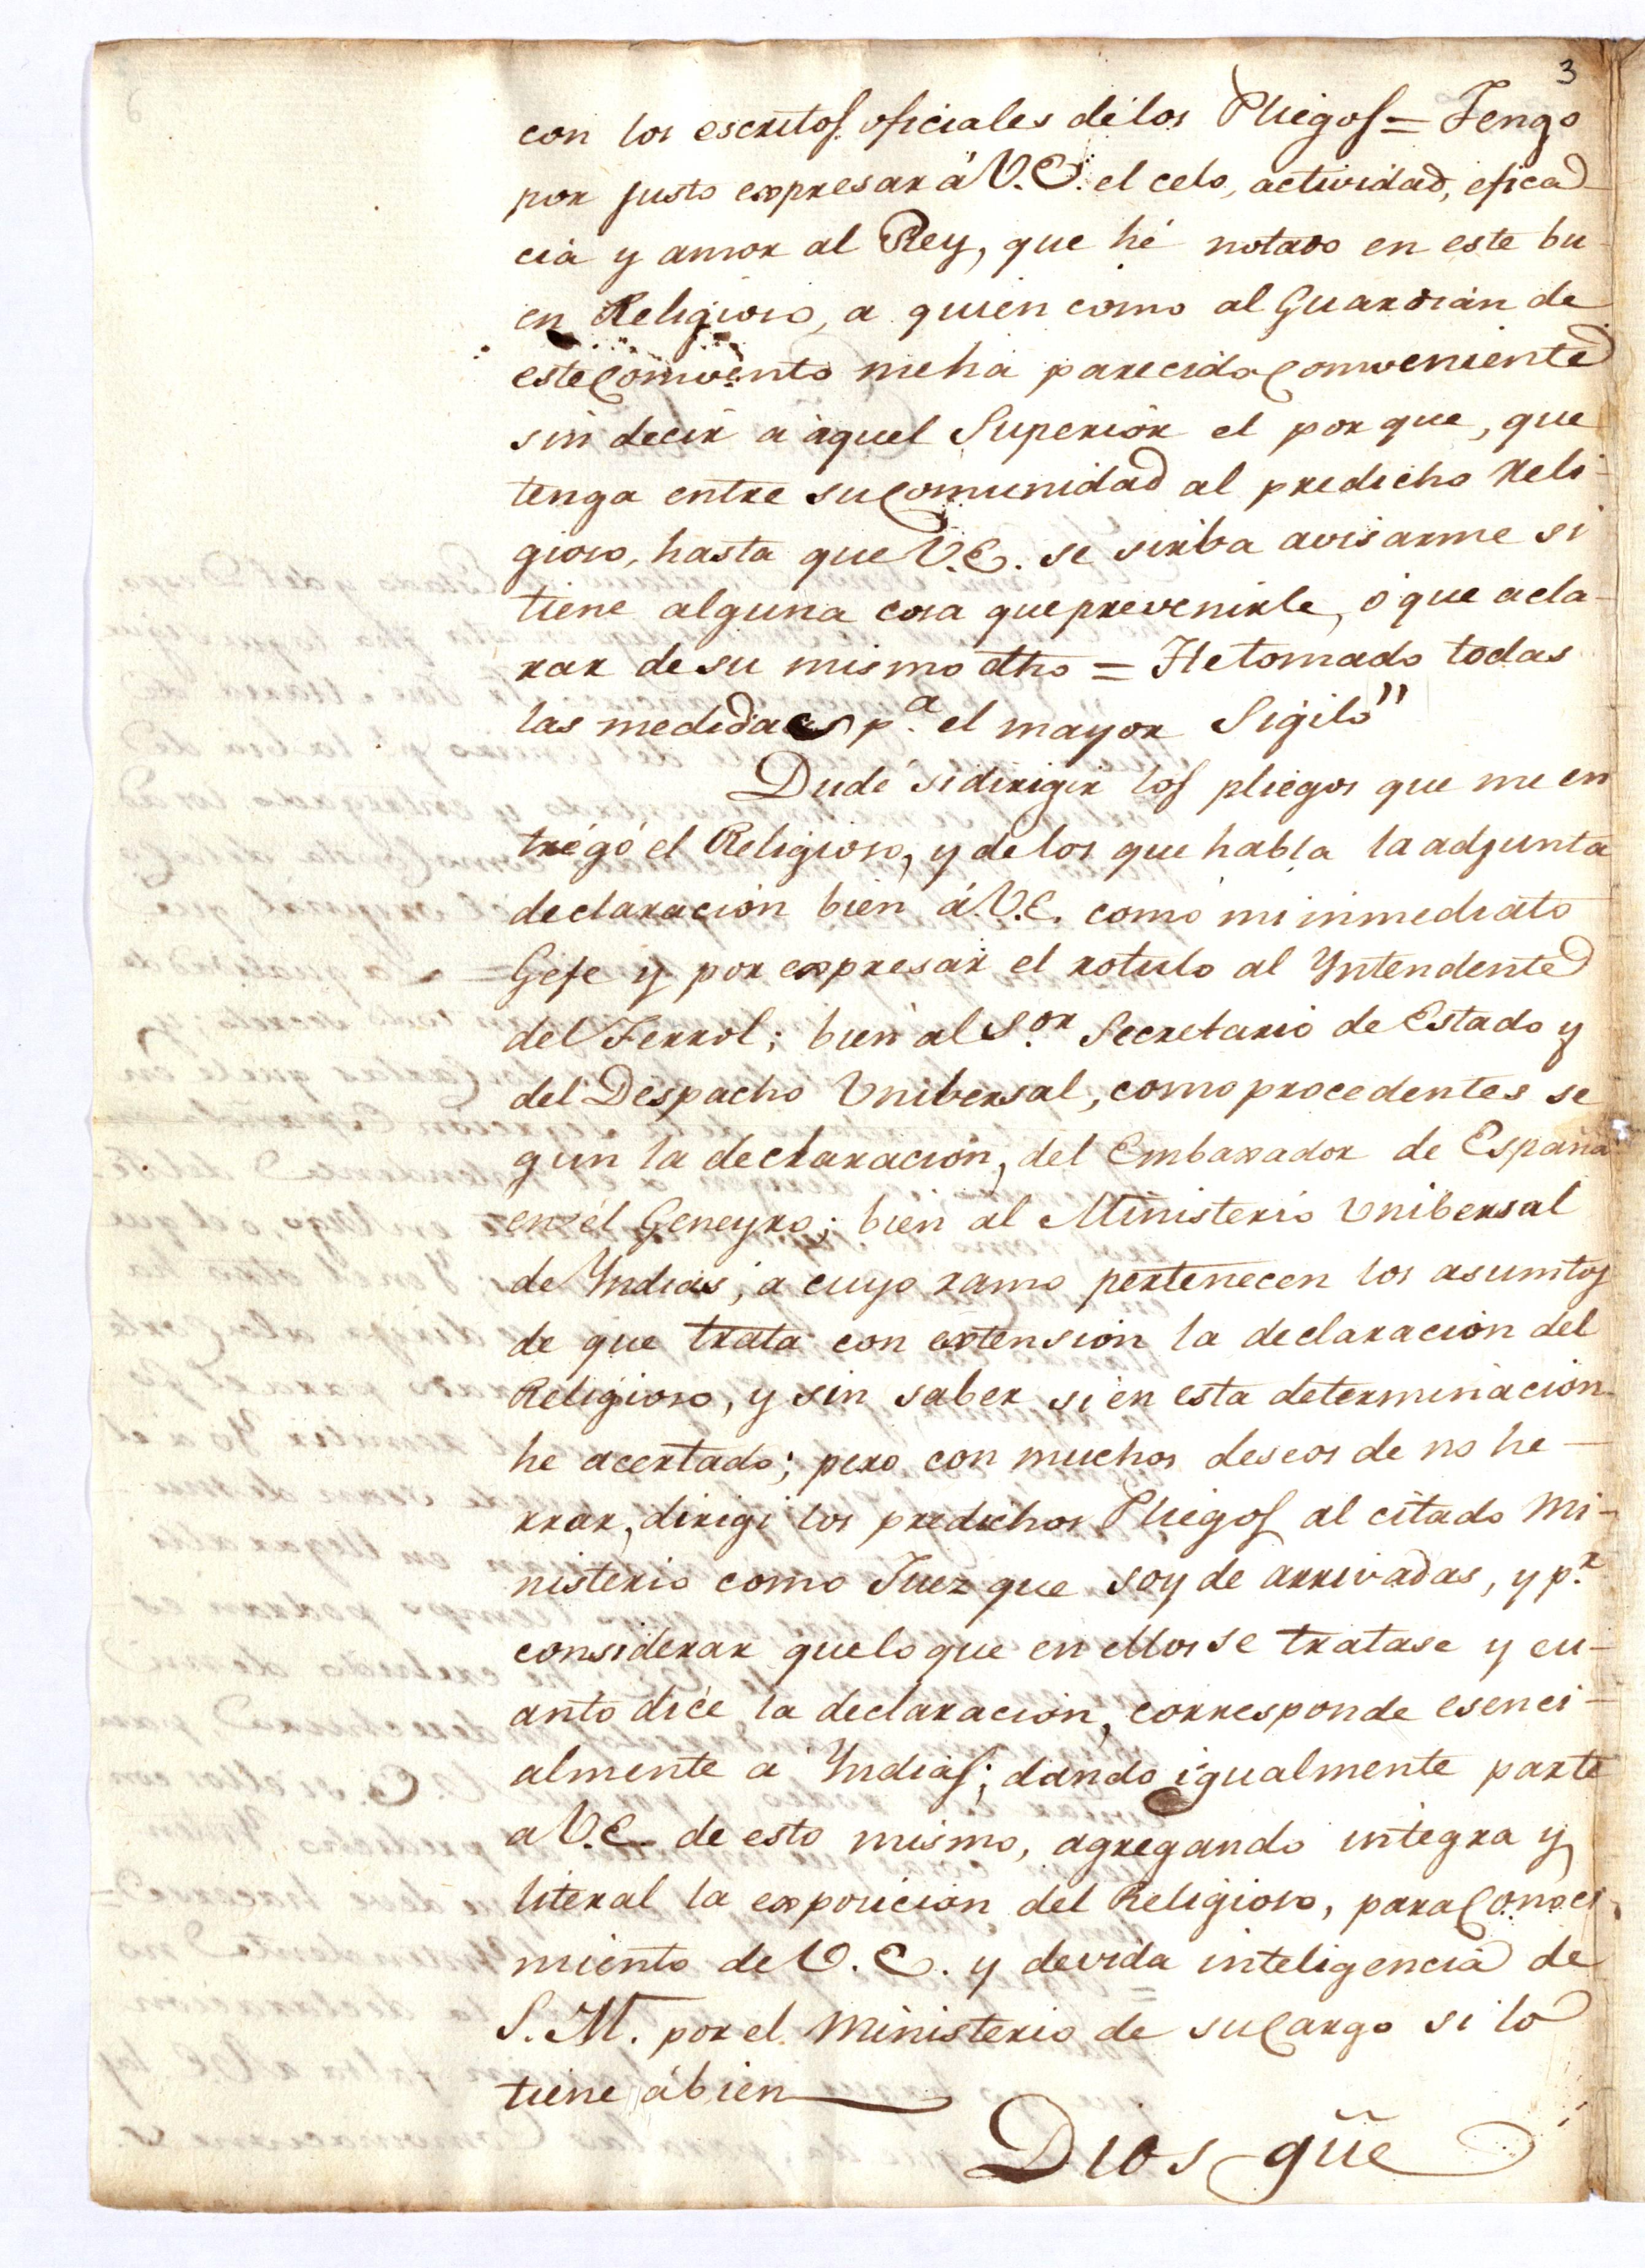 3
con los escritos oficiales de los Pliegos = Tengo
por justo expresar á V.E. el celo, actividad, efica
cia y amor al Rey, que hé notado en este bu
en Religioso, a quien como al Guardián de
este Comvento me ha parecido Comveniente
sin decir a aquel Superior el por que, que
tenga entre su Comunidad al predicho Reli-
gioso, hasta que V.E. se sirba avisarme si
tiene alguna cosa que prevenirle, ó que acla-
rar de su mismo dho = He tomado todas
las medidas p.a el mayor Sigilo"
Dudé si dirigir los pliegos que me en
tregó el Religioso, y de los que habla la adjunta
declaración bien á V.E. como mi inmediato
Gefe y por expresar el rotulo al Yntendente
del Ferrol; bien al S.or Secretario de Estado y
del Despacho Unibersal, como procedentes se
gun la declaración, del Embaxador de España
en él Geneyro; bien al Ministerio Unibersal
de Yndias, a cuyo ramo pertenecen los asumtos
de que trata con extension la declaracion del
Religioso, y sin saber si en esta determinacion
he acertado; pero con muchos deseos de no he-
rrar, dirigi los predichos Pliegos al citado Mi-
nisterio como Juez que soy de arrivadas, y p.r
considerar que lo que en ellos se tratase y cu-
anto dice la declaración, corresponde esenci-
almente a Yndias; dando igualmente parte
a V.E. de esto mismo, agregando integra y
literal la exposicion del Religioso, para Conoci
miento de V.E. y devida inteligencia de
S.M. por el Ministerio de su Cargo si lo
tiene á bien
Dios güe